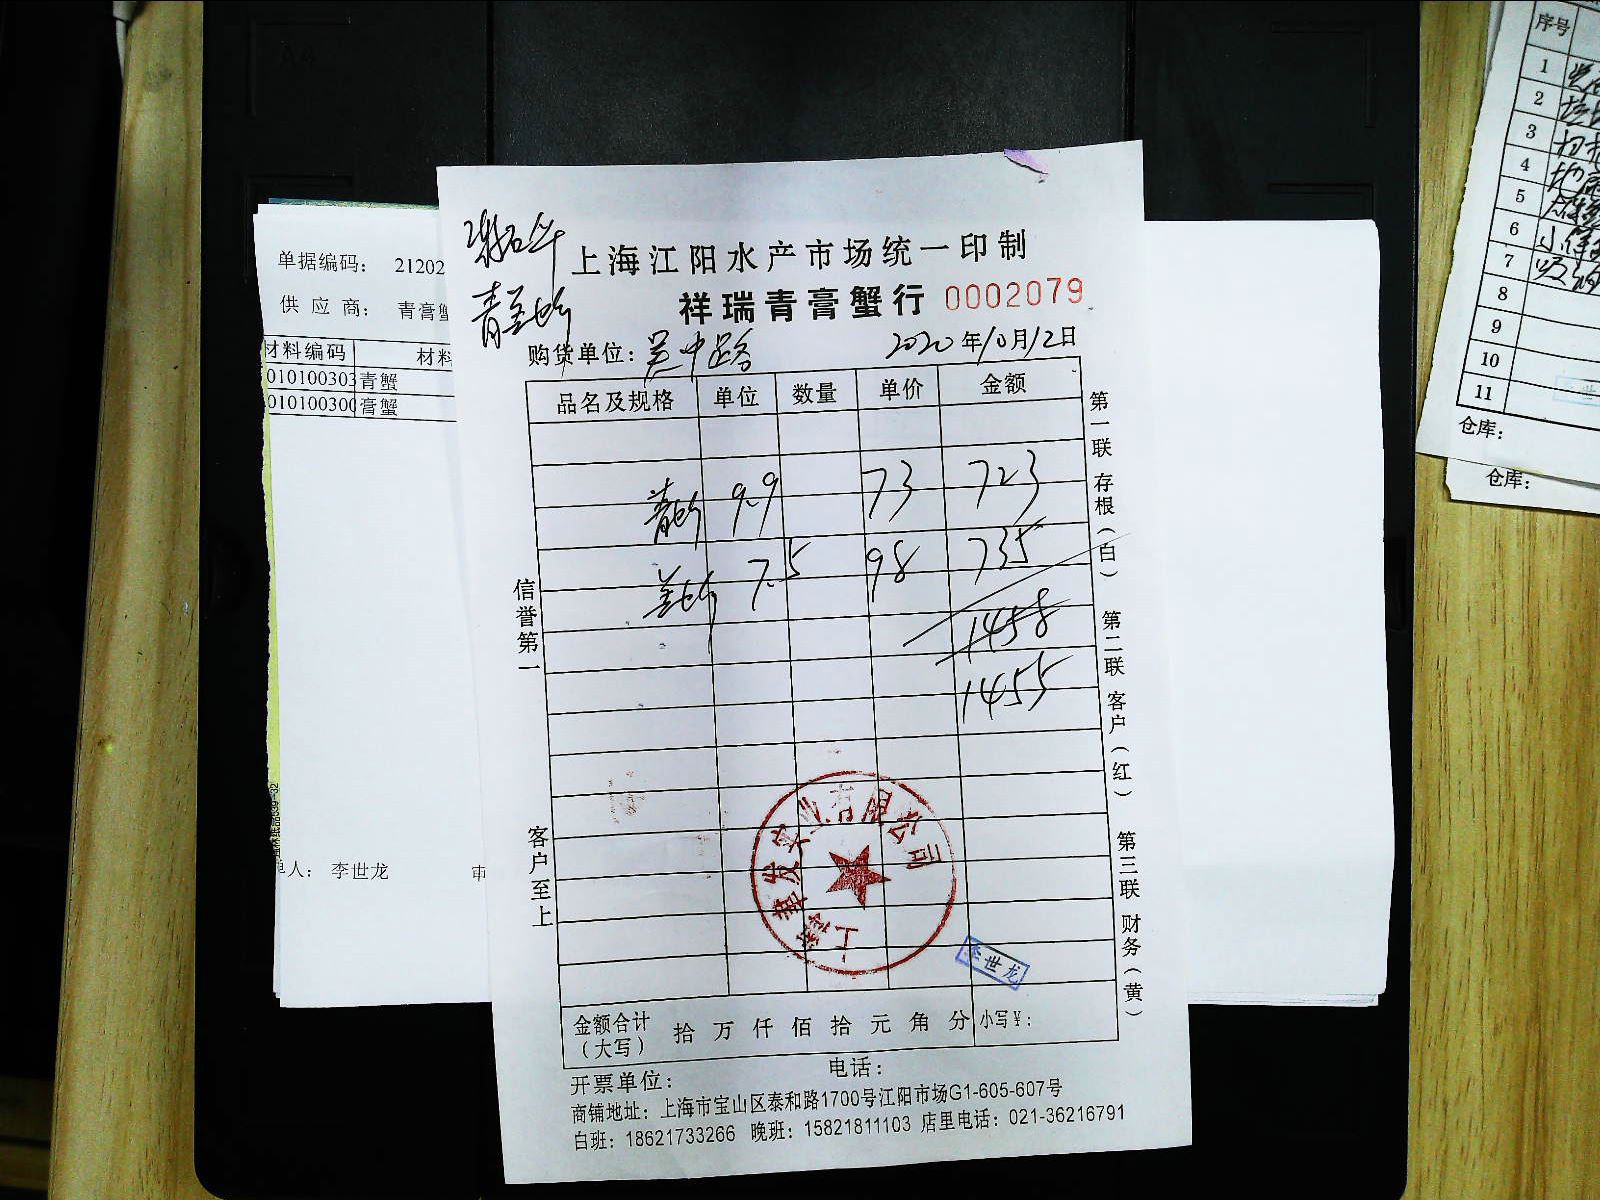 上海江阳水产市场统一印制
祥瑞青膏蟹行 0002079
购货单位：吴中路 2020年10月12日
品名及规格 单位 数量 单价 金额
青蟹 9.9 73 723
7.5 98 735
1458
1455
信誉第一
客户至上
第一联 存根（白）
第二联 客户（红）
第三联 财务（黄）
李世龙
金额合计（大写） 拾 万 仟 佰 拾 元 角 分 小写¥：
开票单位： 电话：
商铺地址：上海市宝山区泰和路1700号江阳市场G1-605-607号
白班：18621733266 晚班：15821811103 店里电话：021-36216791
单据编码： 21202
供 应 商： 青膏蟹
材料编码 材料
010100303 青蟹
01010030 膏蟹
人： 李世龙
序号
1
2
3
4
5
6
7
8
9
10
11
仓库：
仓库：